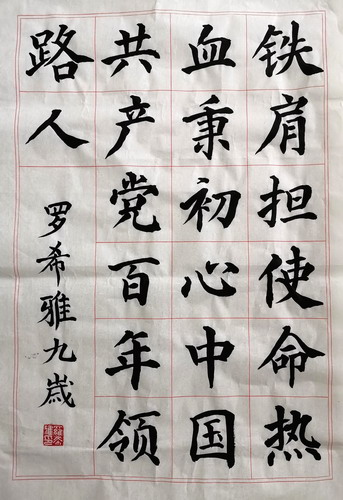 铁肩担使命热
血秉初心中国
共产党百年领
路人
罗希雅九岁